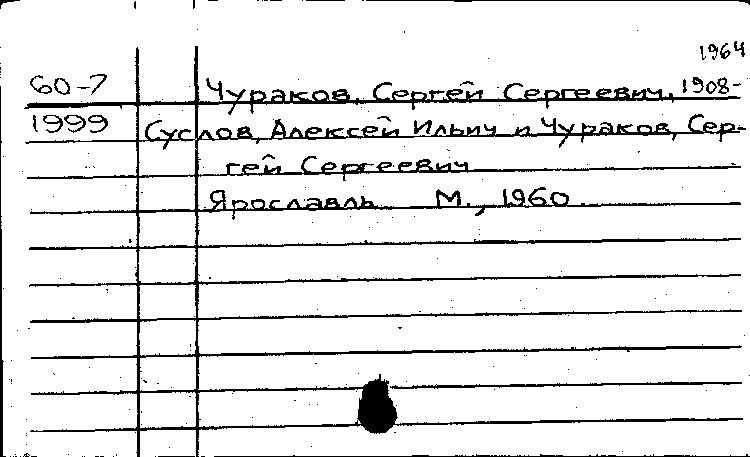 1964
60-7 Чураков, Сергей Сергеевич, 1908-
1999 Суслов, Алексей Ильич и Чураков, Сер-
гей Сергеевич
Ярославль М., 1960.